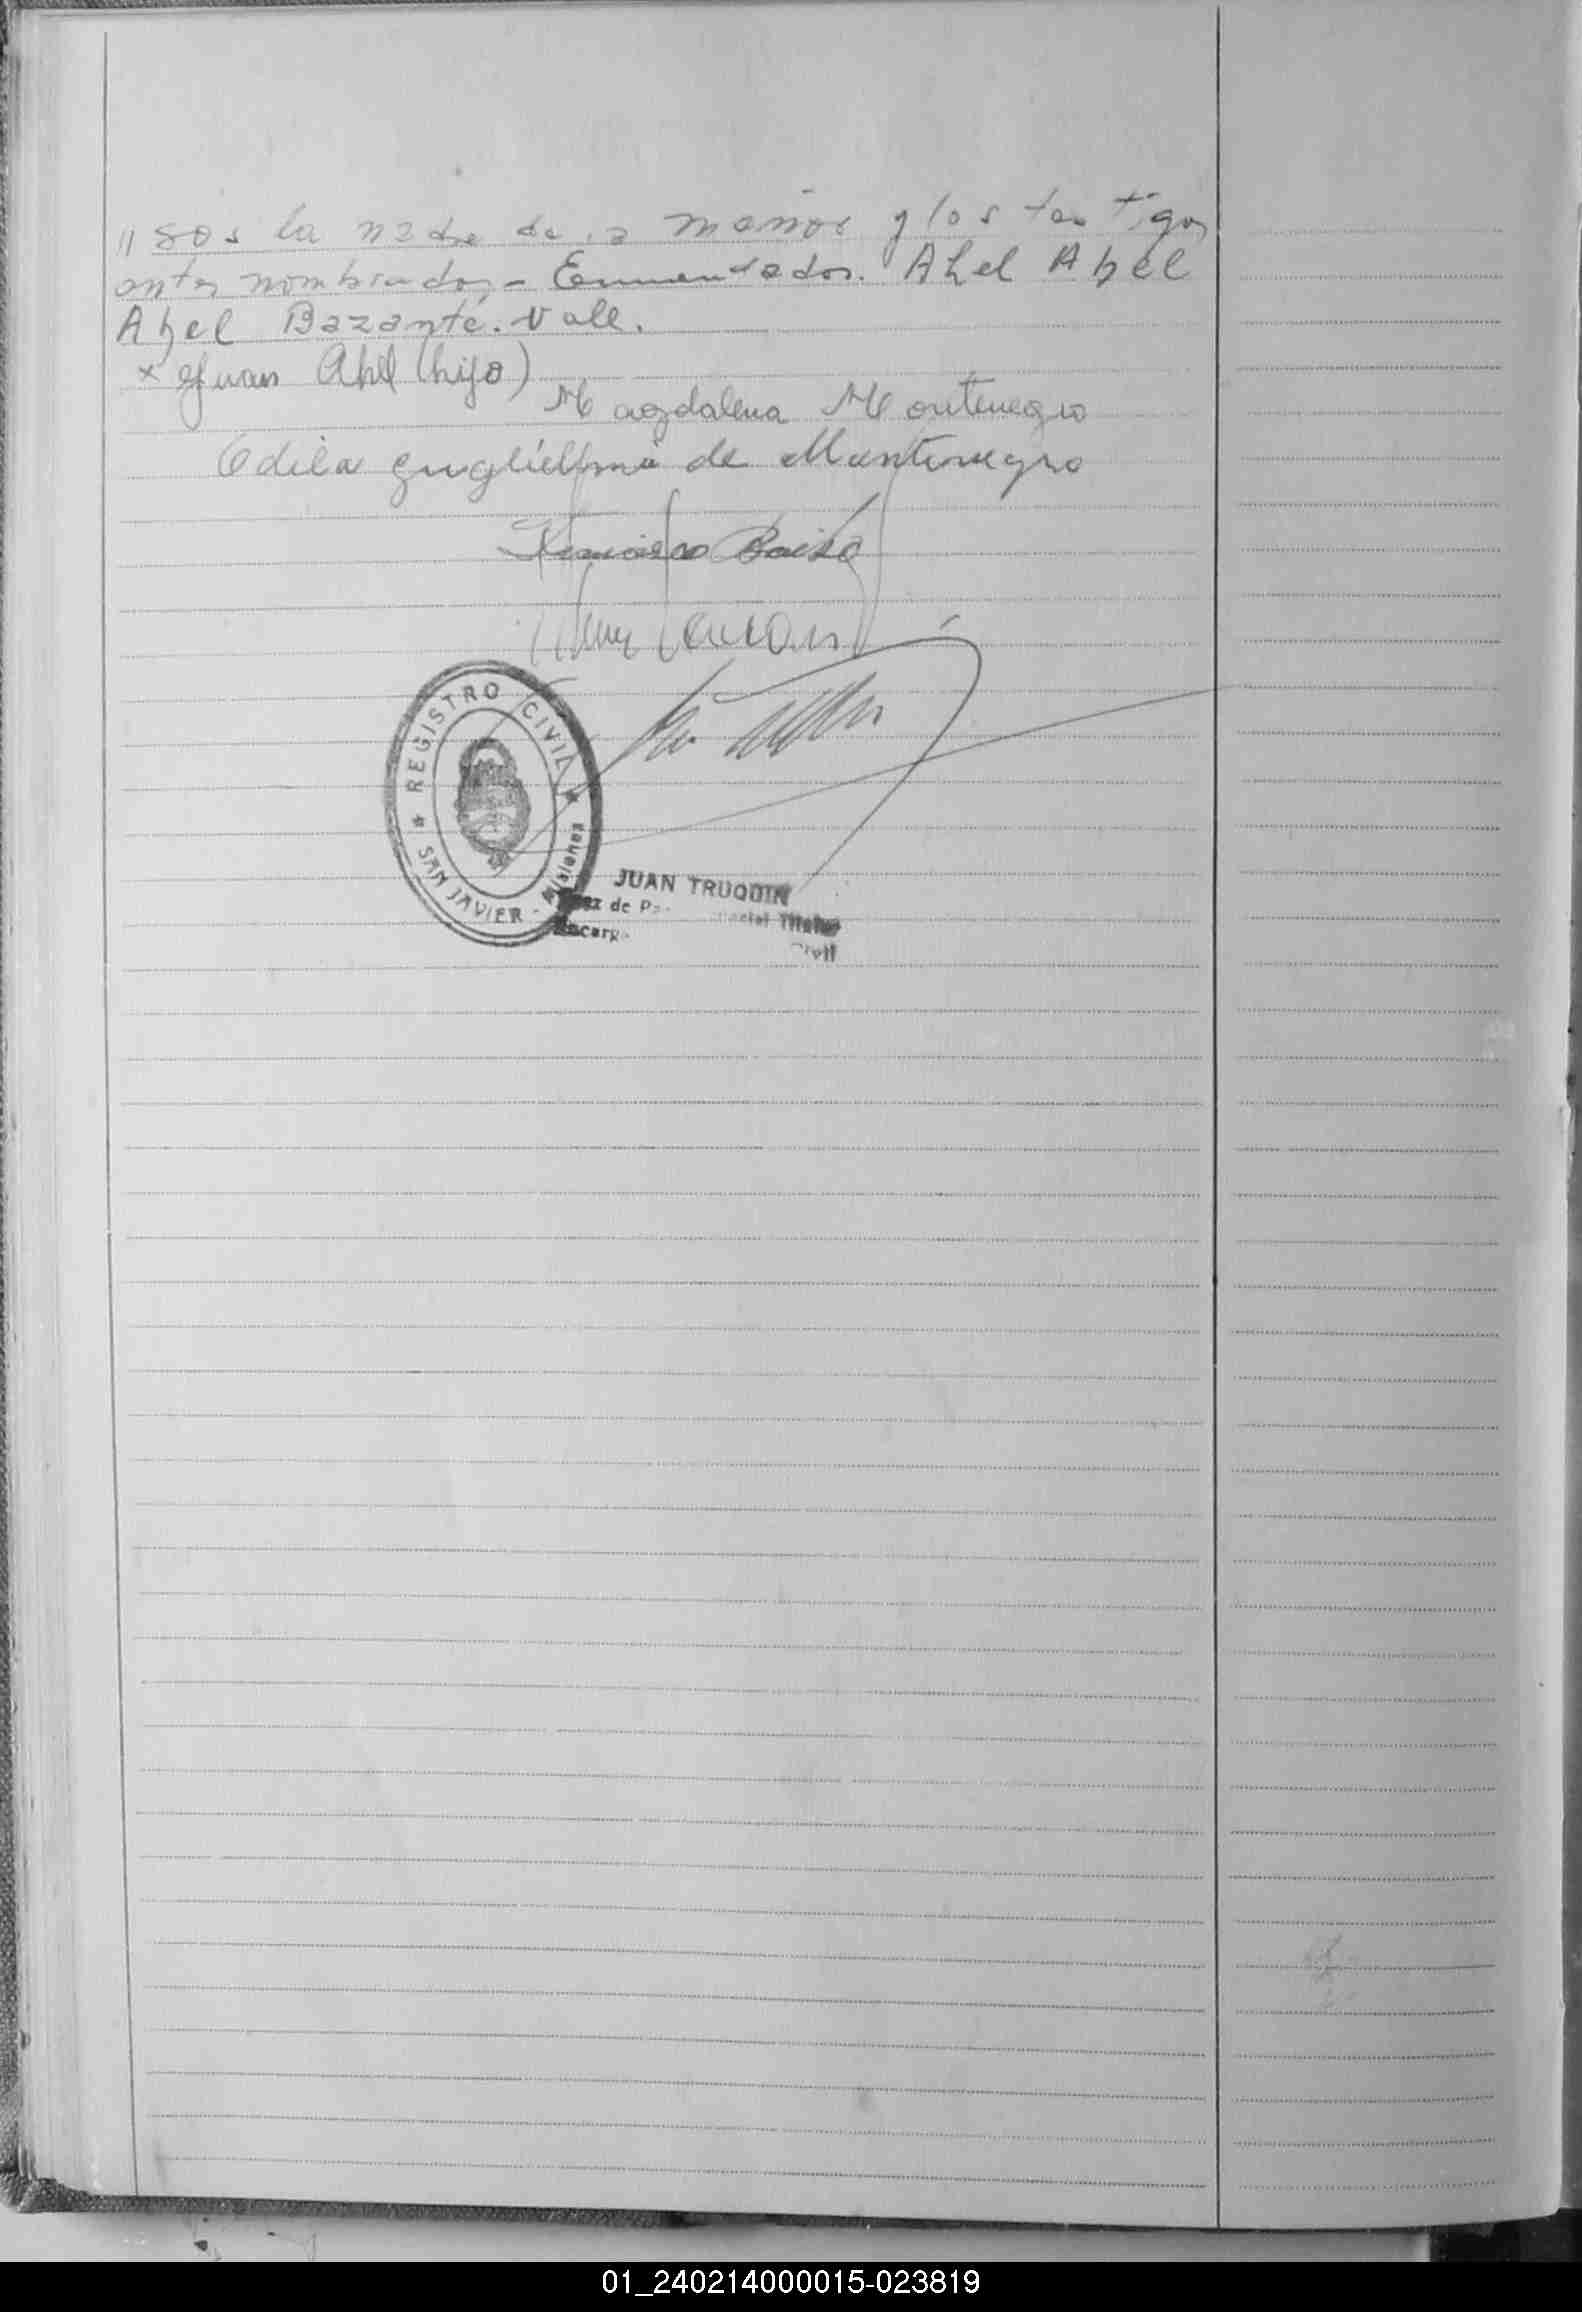 // sos la madre de la menor y los testigos
antes nombrados - Enmendados. Ahel Ahel
Ahel Bazante. Vale.
x Juan Ahel (hijo)
Magdalena Montenegro
Odila Guglielmi de Montenegro
Francisco
REGISTRO CIVIL
SAN JAVIER - Misiones
JUAN TRUQUIN
Juez de Titular
Civil
01_240214000015-023819